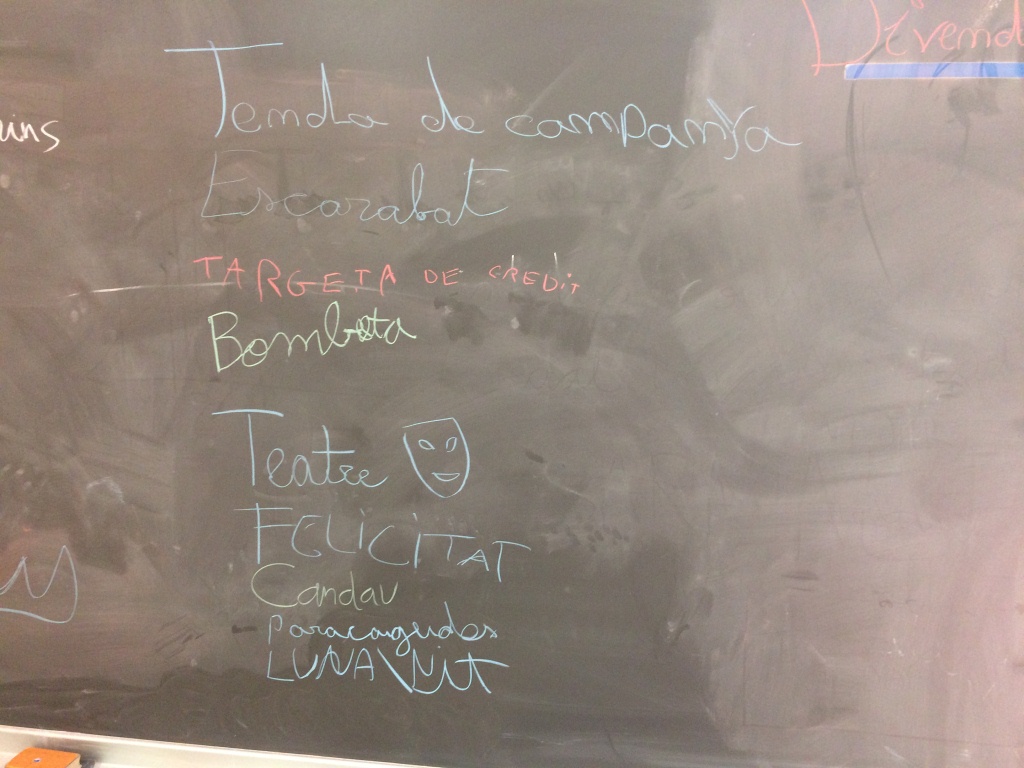 Divend
Tenda de campanya
Escarabat
TARGETA DE CREDIT
Bombeta
Teatre
FELICITAT
Candau
paracaigudes
LUNA\NIT